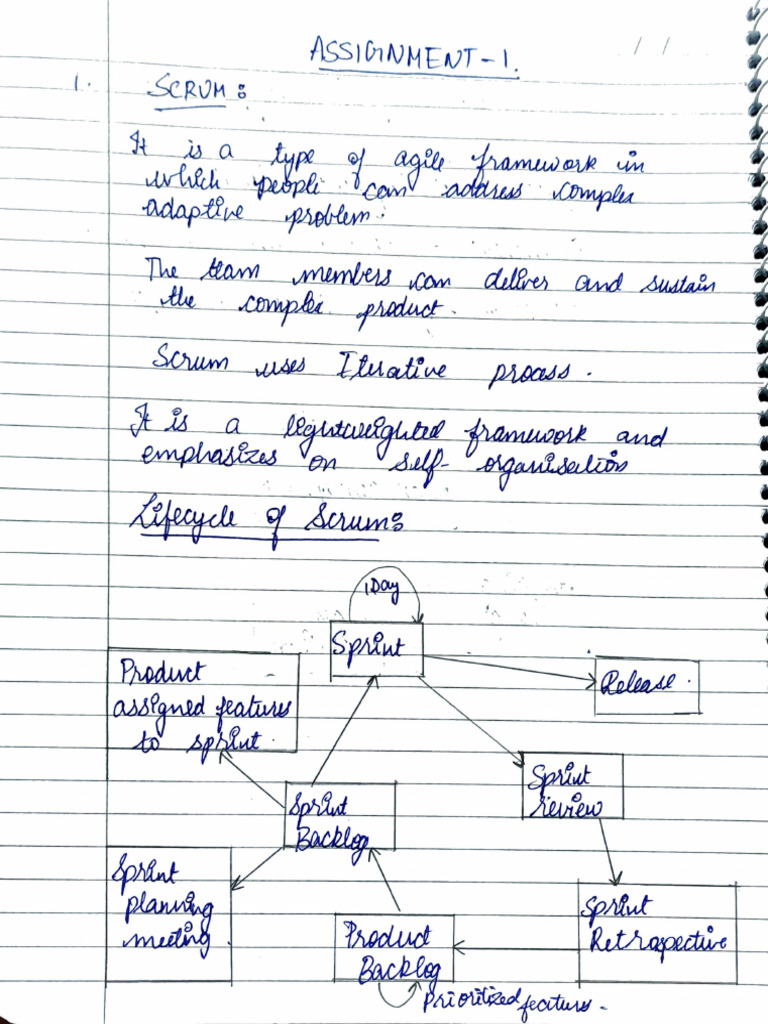 ASSIGNMENT-1.
/ /
1. SCRUM:
It is a type of agile framework in
which people can address complex
adaptive problem.
The team members can deliver and sustain
the complex product.
Scrum uses Iterative process.
It is a lightweighted framework and
emphasizes on self-organisation
Lifecycle of Scrum:
1Day
Sprint
Product
assigned features
to sprint.
Release.
Sprint
review
Sprint
Backlog
Sprint
planning
meeting.
Sprint
Retrospective
Product
Backlog
Prioritized features.